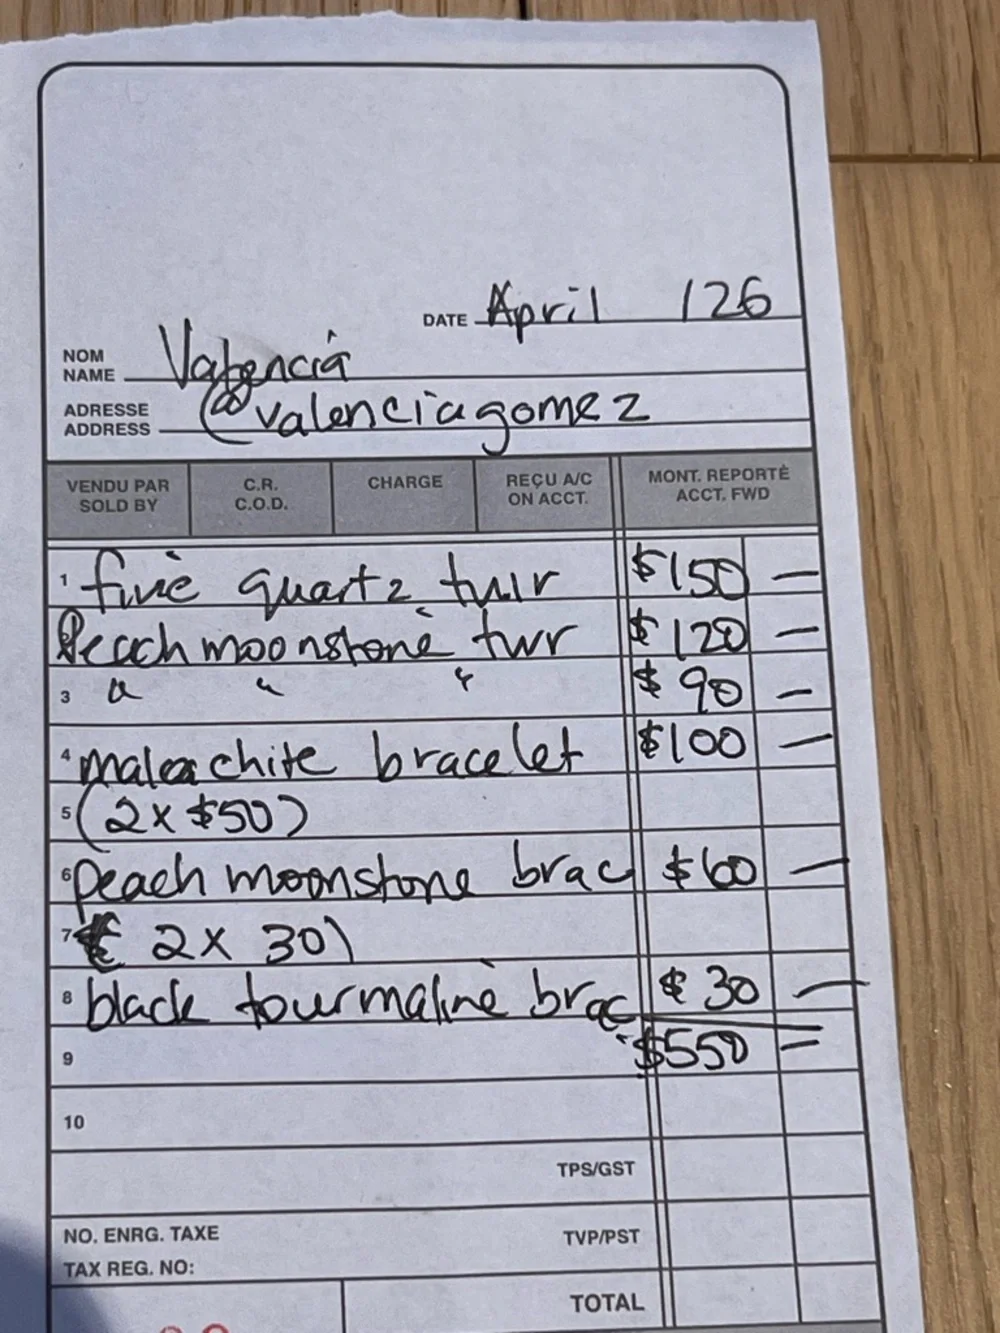 DATE April /26
NOM
NAME Valencia
ADRESSE
ADDRESS @valenciagomez
VENDU PAR
SOLD BY
C.R.
C.O.D.
CHARGE
REÇU A/C
ON ACCT.
MONT. REPORTÉ
ACCT. FWD
1 fire quartz twr $150 —
Peach moonstone twr $120 —
3 " " " $90 —
4 malachite bracelet $100 —
5 (2x $50)
6 peach moonstone brac $60 —
7 2x 30)
8 black tourmaline brac $30 —
9 $550 =
10
TPS/GST
NO. ENRG. TAXE TVP/PST
TAX REG. NO:
TOTAL